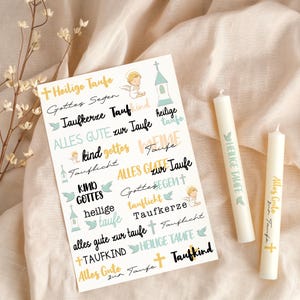 Heilige Taufe
Gottes Segen
Taufkerze Taufkind heilige taufe
ALLES GUTE zur Taufe
kind gottes
Tauflicht
ALLES GUTE zur Taufe
KIND GOTTES
Gottes SEGEN
tauflicht
heilige taufe
Taufkerze
alles gute zur taufe
HEILIGE TAUFE
TAUFKIND
Taufkind
Alles Gute zur Taufe
HEILIGE TAUFE
Alles Gute zur Taufe